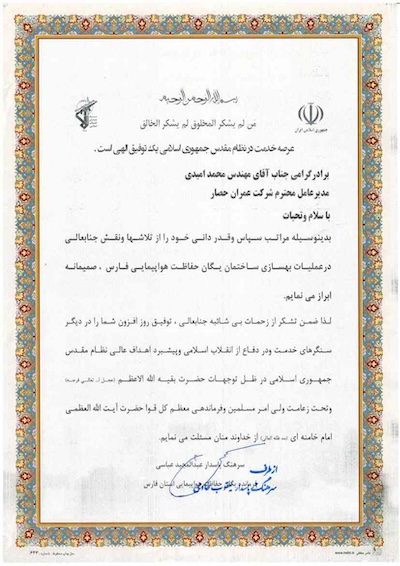 بسم الله الرحمن الرحیم
من لم یشکر المخلوق لم یشکر الخالق
جمهوری اسلامی ایران
عرصه خدمت در نظام مقدس جمهوری اسلامی یک توفیق الهی است .
برادر گرامی جناب آقای مهندس محمد امیدی
مدیر عامل محترم شرکت عمران حصار
با سلام و تحیات
بدینوسیله مراتب سپاس وقدر دانی خود را از تلاشها ونقش جنابعالی
در عملیات بهسازی ساختمان یگان حفاظت هواپیمایی فارس ، صمیمانه
ابراز می نمایم.
لذا ضمن تشکر از زحمات بی شائبه جنابعالی ، توفیق روز افزون شما را در دیگر
سنگرهای خدمت ودر دفاع از انقلاب اسلامی وپیشبرد اهداف عالی نظام مقدس
جمهوری اسلامی در ظل توجهات حضرت بقیه الله الاعظم
وتحت زعامت ولی امر مسلمین وفرماندهی معظم کل قوا حضرت آیت الله العظمی
امام خامنه ای از خداوند منان مسئلت می نمایم.
سرهنگ پاسدار عبدالمجید عباسی
حفاظت هواپیمایی استان فارس
از طرف
سرهنگ پاسدار یعقوب